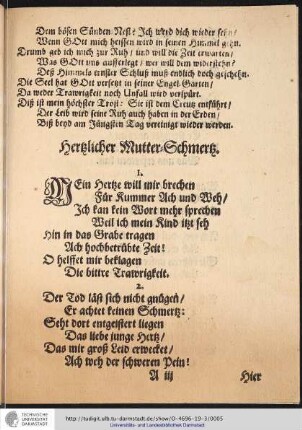 Dem bösen Sünden Nest? Ich werd dich wieder sehn/
Wenn GOtt mich heissen wird in seinen Himmel gehn.
Drumb geb ich mich zur Ruh/ und will die Zeit erwarten/
Was GOtt uns aufferlegt/ wer will dem widerstehn?
Deß Himmels ernster Schluß muß endlich doch geschehn.
Die Seel hat GOtt versetzt in seiner Engel Garten/
Da weder Trawrigkeit noch Unfall wird verspürt.
Diß ist mein höchster Trost: Sie ist dem Creutz entführt/
Der Leib wird seine Ruh auch haben in der Erden/
Biß beyd am Jüngsten Tag vereinigt wieder werden.
Hertzlicher Mutter-Schmertz.
1.
MEin Hertze will mir brechen
Für Kummer Ach und Weh/
Ich kan kein Wort mehr sprechen
Weil ich mein Kind itz seh
Hin in das Grabe tragen
Ach hochbetrübte Zeit!
O helffet mir beklagen
Die bittre Trawrigkeit.
2.
Der Tod läst sich nicht gnügen/
Er achtet keinen Schmertz:
Seht dort entgeistert liegen
Das liebe junge Hertz/
Das mir groß Leid erwecket/
Ach weh der schweren Pein!
A iij Hier
TECHNISCHE
UNIVERSITÄT
DARMSTADT
http://tudigit.ulb.tu-darmstadt.de/show/O-4696-19-3/0005
Universitäts- und Landesbibliothek Darmstadt